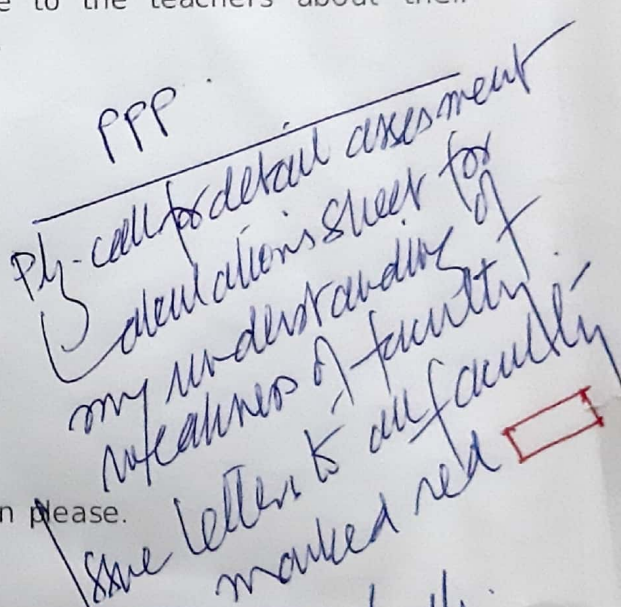 to the teachers about their
PPP
Plz. call for detail assesment
Calculations Sheet for
my understanding of
weakness of faculty.
n please.
Issue letters to all faculty
marked red